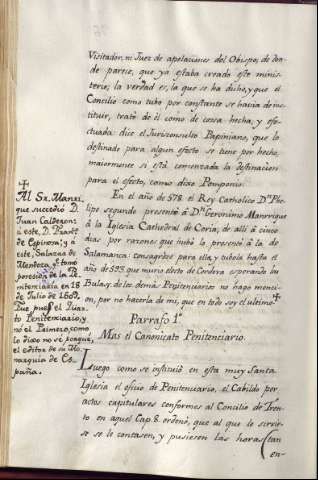 Visitador, ni Juez de apelaciones del Obispo, de don-
de parece, que ya estaba creado este minis-
terio; la verdad es, la que se ha dicho, y que el
Concilio como tubo por constante se havia de ins-
tituir, trató de él como de cossa hecha, y efe-
ctuada: dice el Jurisconsulto Papiniano, que lo
destinado para algun efecto se tiene por hecho,
maiormente si está comenzada la destinacion
para el efecto, como dixo Pomponio.
En el año de 578. el Rey Catholico Dn. Phe-
lipe segundo presentó á Dn. Geronimo Manrrique
á la Iglesia Cathedral de Coria; de alli á cinco
dias por razones que hubo lo presentó á la de
Salamanca: consagróse para ella, y tubola hasta el
año de 593. que murió electo de Cordova esperando las
Bulas, de lo demás Penitenciario no hago menci-
on, por no hacerla de mi, que en todo soy el ultimo. +
+
Al Sr. Manri-
que sucedió D.
Juan Calderon:
á este, D. Franco.
de Espinosa; y á
este, Salazar de
Mendoza, q. tomó
posesion de la Pe-
nitenciaria en 18
de Julio de 1607.
Fue pues el Quar-
to Penitenciario, y
no el Primero, como
lo dixo no sé porque,
el editor de su Mo-
narquia de Es-
paña.
Parrafo 1º
Mas el Canonicato Penitenciario.
Luego como se instituió en esta muy Santa
Iglesia el oficio de Penitenciario, el Cabildo por
actos capitulares conformes al Concilio de Tren-
to en aquel Cap. 8. ordenó, que al que le sirvie-
se se le contasen, y pusiesen las horas (tan
en-